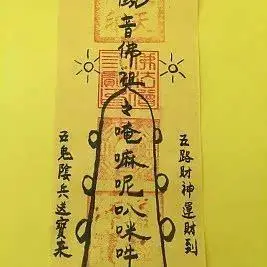 五路財神運財到
音佛祖々唵嘛呢叭咪吽
五鬼陰兵送寶來